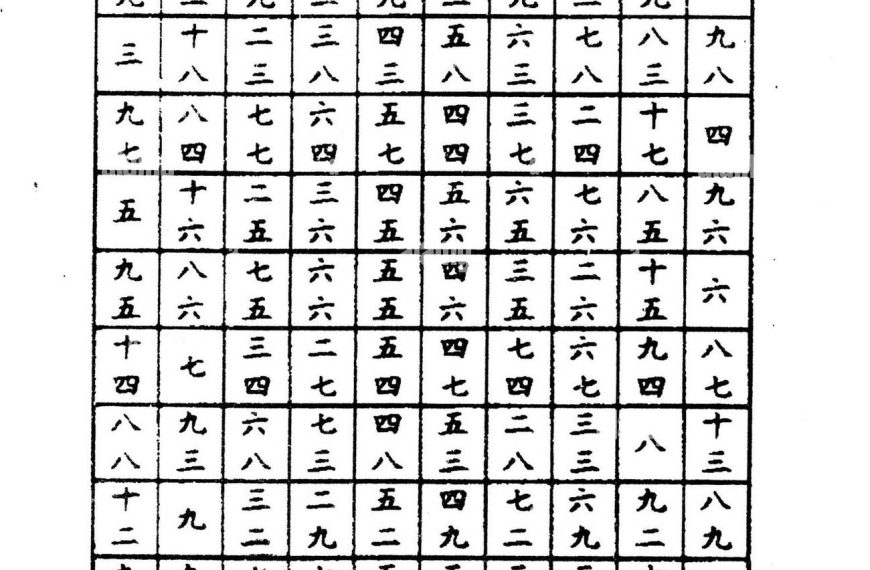 三 十八 二三 三八 四三 五八 六三 七八 八三 九八
九七 八四 七七 六四 五七 四四 三七 二四 十七 四
五 十六 二五 三六 四五 五六 六五 七六 八五 九六
九五 八六 七五 六六 五五 四六 三五 二六 十五 六
十四 七 三四 二七 五四 四七 七四 六七 九四 八七
八八 九三 六八 七三 四八 五三 二八 三三 八 十三
十二 九 三二 二九 五二 四九 七二 六九 九二 八九